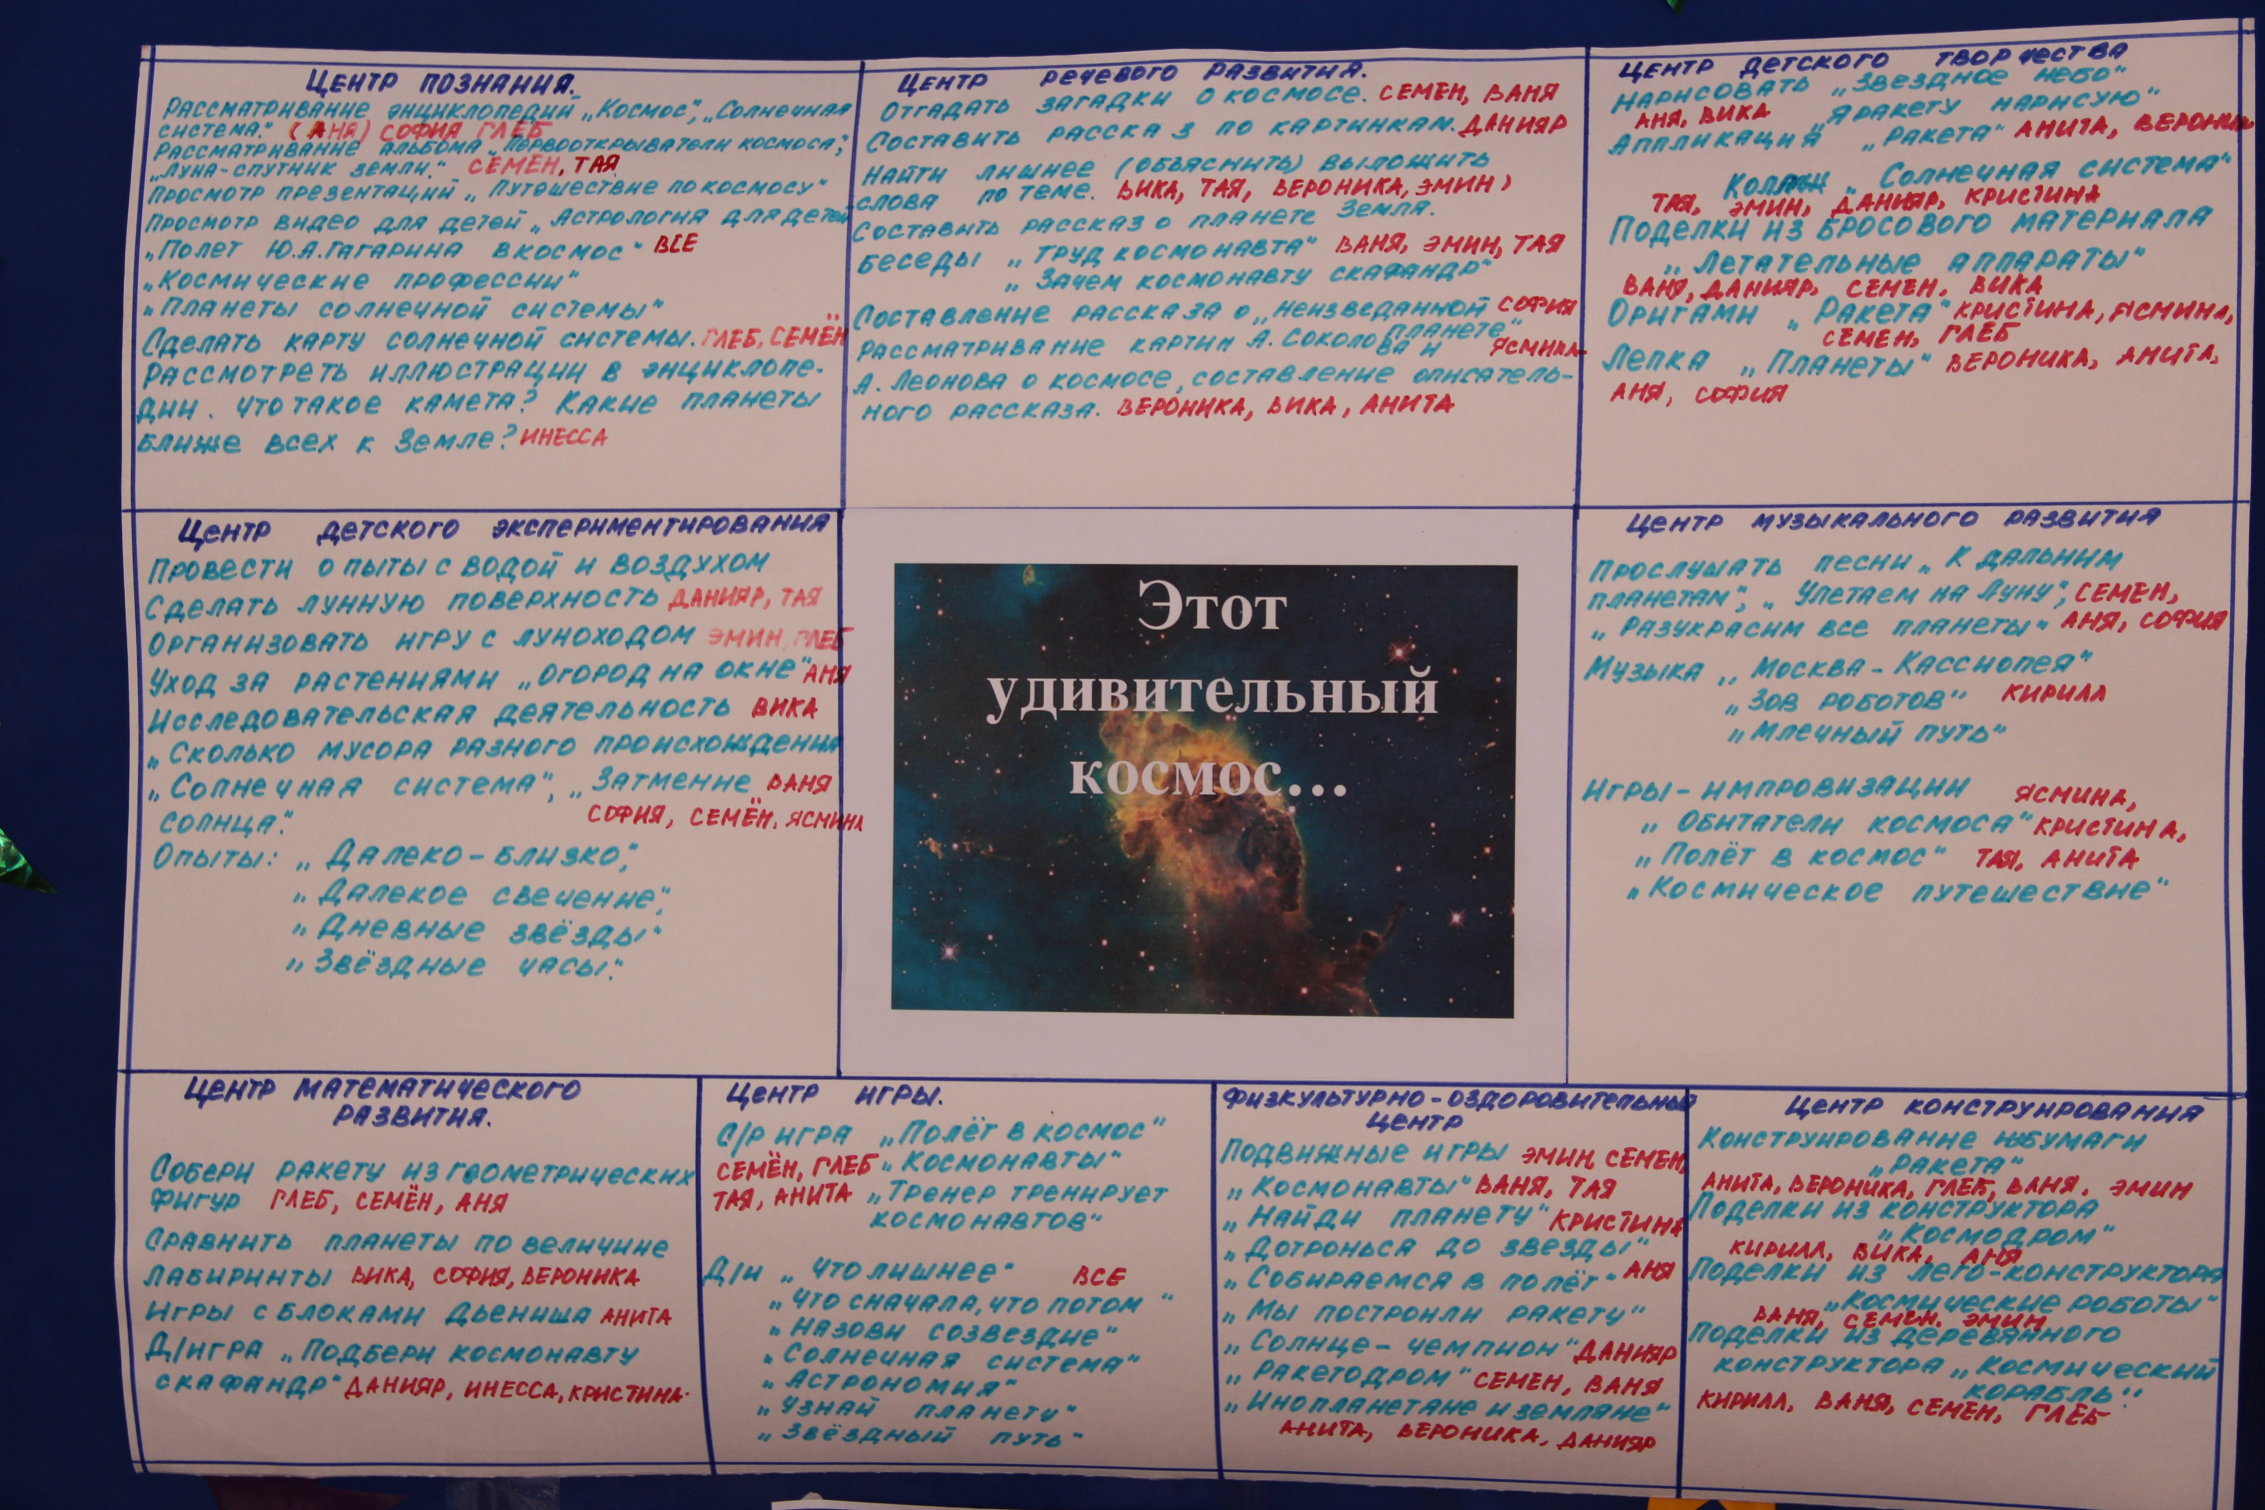 ЦЕНТР ПОЗНАНИЯ.
Рассматривание энциклопедий „Космос", „Солнечная
система." (АНЯ) СОФИЯ ГЛЕБ
Рассматривание альбома „Первооткрыватели космоса",
„Луна-спутник земли." СЕМЕН, ТАЯ
Просмотр презентаций „Путешествие по космосу"
Просмотр видео для детей „Астрология для детей
„Полет Ю.А.Гагарина в космос" ВСЕ
„Космические профессии"
„Планеты солнечной системы"
Сделать карту солнечной системы. ГЛЕБ, СЕМЁН
Рассмотреть иллюстрации в энциклопе-
дии. Что такое камета? Какие планеты
ближе всех к Земле? ИНЕССА
ЦЕНТР РЕЧЕВОГО РАЗВИТИЯ.
Отгадать загадки о космосе. СЕМЕН, ВАНЯ
Составить рассказ по картинкам. ДАНИЯР
Найти лишнее (объяснить) выложить
слова по теме. ВИКА, ТАЯ, ВЕРОНИКА, ЭМИН)
Составить рассказ о планете Земля.
Беседы „Труд космонавта" ВАНЯ, ЭМИН, ТАЯ
„Зачем космонавту скафандр"
Составление рассказа о „неизведанной СОФИЯ
планете"
Рассматривание картин А. Соколова и ЯСМИНА
А. Леонова о космосе, составление описатель-
ного рассказа. ВЕРОНИКА, ВИКА, АНИТА
ЦЕНТР ДЕТСКОГО ТВОРЧЕСТВА
Нарисовать „Звездное небо"
АНЯ, ВИКА „Я ракету нарисую"
Аппликаций „Ракета" АНИТА, ВЕРОНИКА
Коллаж „Солнечная система"
ТАЯ, ЭМИН, ДАНИЯР, КРИСТИНА
Поделки из бросового материала
„Летательные аппараты"
ВАНЯ, ДАНИЯР, СЕМЕН, ВИКА
Оригами „Ракета" КРИСТИНА, ЯСМИНА,
СЕМЕН, ГЛЕБ
Лепка „Планеты" ВЕРОНИКА, АНИТА,
АНЯ, СОФИЯ
Центр детского экспериментирования
Провести опыты с водой и воздухом
Сделать лунную поверхность ДАНИЯР, ТАЯ
Организовать игру с луноходом ЭМИН, ГЛЕБ
Уход за растениями „Огород на окне" АНЯ
Исследовательская деятельность ВИКА
„Сколько мусора разного происхождения
„Солнечная система", „Затмение ВАНЯ
солнца". СОФИЯ, СЕМЁН, ЯСМИНА
Опыты: „Далеко-близко",
„Далекое свечение",
„Дневные звёзды"
„Звёздные часы".
Этот
удивительный
космос…
Центр музыкального развития
Прослушать песни „К дальним
планетам", „Улетаем на Луну", СЕМЕН,
„Разукрасим все планеты" АНЯ, СОФИЯ
Музыка „Москва-Кассиопея"
„Зов роботов" КИРИЛЛ
„Млечный путь"
Игры-импровизации ЯСМИНА,
„Обитатели космоса" КРИСТИНА,
„Полёт в космос" ТАЯ, АНИТА
„Космическое путешествие"
Центр математического
развития.
Собери ракету из геометрических
фигур ГЛЕБ, СЕМЁН, АНЯ
Сравнить планеты по величине
Лабиринты ВИКА, СОФИЯ, ВЕРОНИКА
Игры с блоками Дьениша АНИТА
Д/игра „Подбери космонавту
скафандр" ДАНИЯР, ИНЕССА, КРИСТИНА.
Центр игры.
С/р игра „Полёт в космос"
СЕМЁН, ГЛЕБ „Космонавты"
ТАЯ, АНИТА „Тренер тренирует
космонавтов"
Д/и „Что лишнее" ВСЕ
„Что сначала, что потом"
„Назови созвездие"
„Солнечная система"
„Астрономия"
„Узнай планету"
„Звёздный путь"
Физкультурно-оздоровительный
центр
Подвижные игры ЭМИН, СЕМЕН,
„Космонавты" ВАНЯ, ТАЯ
„Найди планету" КРИСТИНА
„Дотронься до звезды"
„Собираемся в полёт" АНЯ
„Мы построили ракету"
„Солнце-чемпион" ДАНИЯР
„Ракетодром" СЕМЕН, ВАНЯ
„Инопланетане и земляне"
АНИТА, ВЕРОНИКА, ДАНИЯР
Центр конструирования
Конструирование из бумаги
„Ракета"
АНИТА, ВЕРОНИКА, ГЛЕБ, ВАНЯ, ЭМИН
Поделки из конструктора
„Космодром"
КИРИЛЛ, ВИКА, АНЯ
Поделки из лего-конструктора
„Космические роботы"
ВАНЯ, СЕМЕН, ЭМИН
Поделки из деревянного
конструктора „Космический
корабль".
КИРИЛЛ, ВАНЯ, СЕМЕН, ГЛЕБ